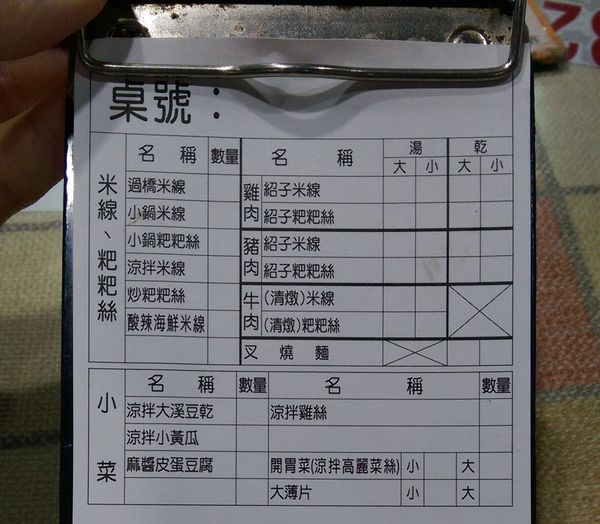 桌號：
米線、粑粑絲
名稱 數量 名稱 湯 乾
大 小 大 小
過橋米線 雞肉 紹子米線
小鍋米線 紹子粑粑絲
小鍋粑粑絲 豬肉 紹子米線
涼拌米線 紹子粑粑絲
炒粑粑絲 牛肉 (清燉)米線
酸辣海鮮米線 (清燉)粑粑絲
叉燒麵
小菜
名稱 數量 名稱 數量
涼拌大溪豆乾 涼拌雞絲
涼拌小黃瓜
麻醬皮蛋豆腐 開胃菜(涼拌高麗菜絲) 小 大
大薄片 小 大